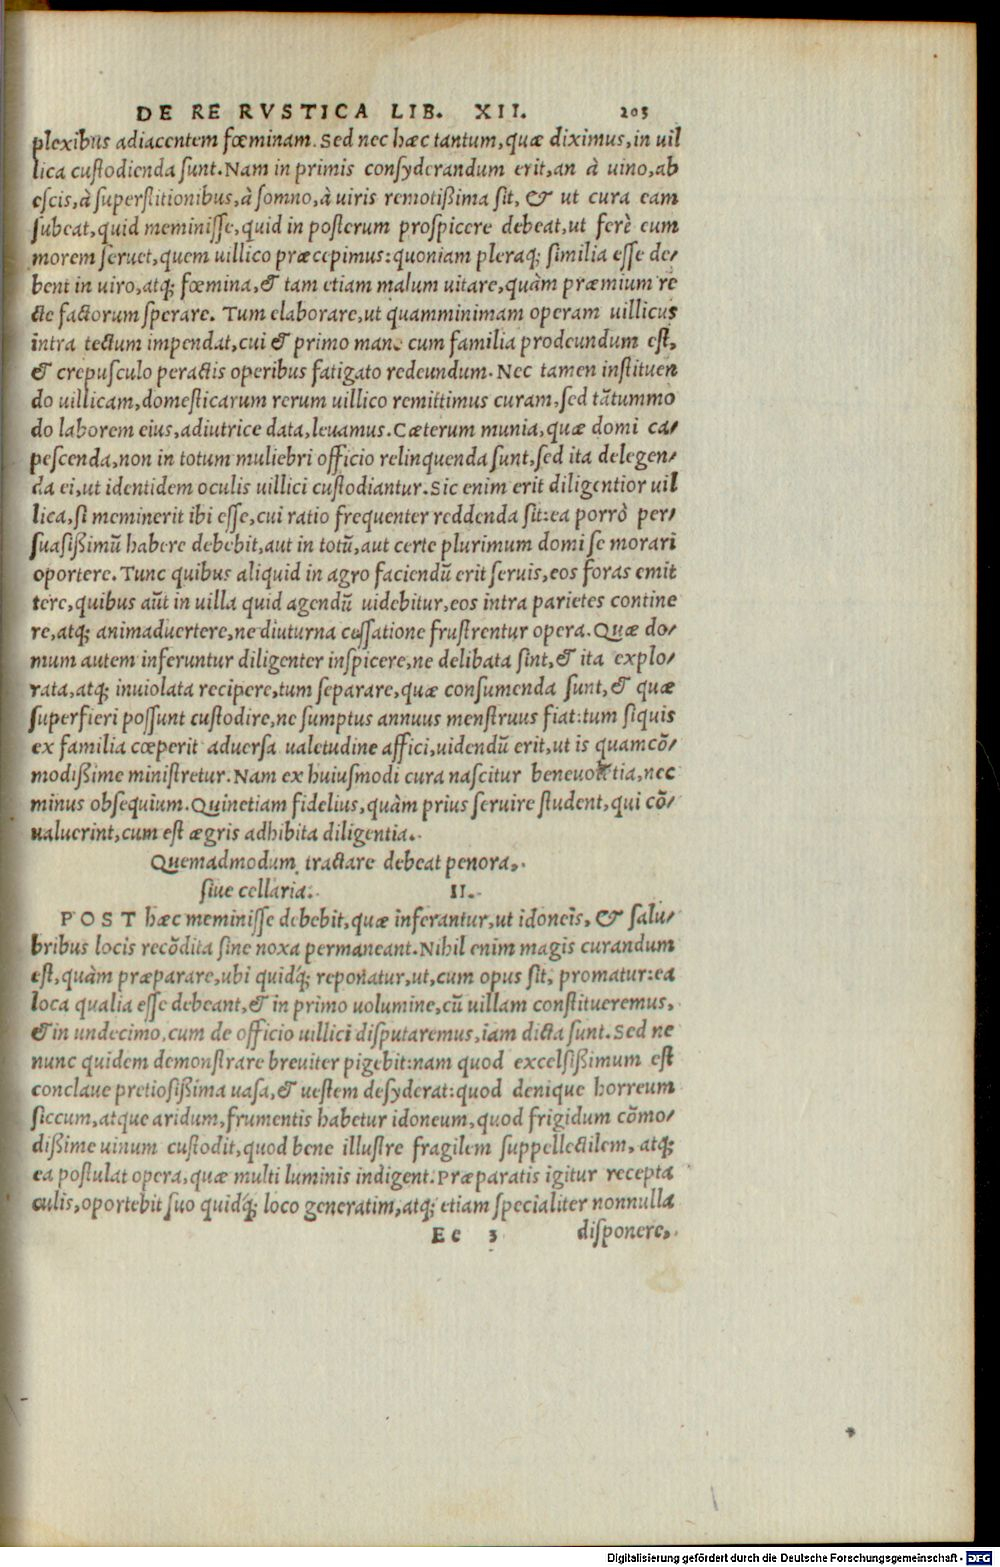 DE RE RVSTICA LIB. XII. 203
plexibus adiacentem fœminam. Sed nec hæc tantum, quæ diximus, in uil
lica custodienda sunt. Nam in primis consyderandum erit, an à uino, ab
escis, à superstitionibus, à somno, à uiris remotißima sit, & ut cura eam
subeat, quid meminisse, quid in posterum prospicere debeat, ut ferè eum
morem seruet, quem uillico præcepimus: quoniam pleraq; similia esse de/
bent in uiro, atq; fœmina, & tam etiam malum uitare, quàm præmium re
cte factorum sperare. Tum elaborare, ut quamminimam operam uillicus
intra tectum impendat, cui & primo mane cum familia prodeundum est,
& crepusculo peractis operibus fatigato redeundum. Nec tamen instituen
do uillicam, domesticarum rerum uillico remittimus curam, sed tãtummo
do laborem eius, adiutrice data, leuamus. Cæterum munia, quæ domi ca/
pescenda, non in totum muliebri officio relinquenda sunt, sed ita delegen/
da ei, ut identidem oculis uillici custodiantur. Sic enim erit diligentior uil
lica, si meminerit ibi esse, cui ratio frequenter reddenda sit: ea porrò per/
suasißimũ habere debebit, aut in totũ, aut certe plurimum domi se morari
oportere. Tunc quibus aliquid in agro faciendũ erit seruis, eos foras emit
tere, quibus aũt in uilla quid agendũ uidebitur, eos intra parietes contine
re, atq; animaduertere, ne diuturna cessatione frustrentur opera. Quæ do/
mum autem inferuntur diligenter inspicere, ne delibata sint, & ita explo/
rata, atq; inuiolata recipere, tum separare, quæ consumenda sunt, & quæ
superfieri possunt custodire, ne sumptus annuus menstruus fiat: tum siquis
ex familia cœperit aduersa ualetudine affici, uidendũ erit, ut is quamcõ/
modißime ministretur. Nam ex huiusmodi cura nascitur beneuolentia, nec
minus obsequium. Quinetiam fidelius, quàm prius seruire student, qui cõ/
ualuerint, cum est ægris adhibita diligentia.
Quemadmodum tractare debeat penora,
siue cellaria. II.
POST hæc meminisse debebit, quæ inferantur, ut idoneis, & salu/
bribus locis recõdita sine noxa permaneant. Nihil enim magis curandum
est, quàm præparare, ubi quidq́; reponatur, ut, cum opus sit, promatur: ea
loca qualia esse debeant, & in primo uolumine, cũ uillam constitueremus,
& in undecimo, cum de officio uillici disputaremus, iam dicta sunt. Sed ne
nunc quidem demonstrare breuiter pigebit: nam quod excelsißimum est
conclaue pretiosißima uasa, & uestem desyderat: quod denique horreum
siccum, atque aridum, frumentis habetur idoneum, quod frigidum cõmo/
dißime uinum custodit, quod bene illustre fragilem suppellectilem, atq;
ea postulat opera, quæ multi luminis indigent. Præparatis igitur recepta
culis, oportebit suo quidq́; loco generatim, atq; etiam specialiter nonnulla
Ee 3 disponere,
Digitalisierung gefördert durch die Deutsche Forschungsgemeinschaft - DFG